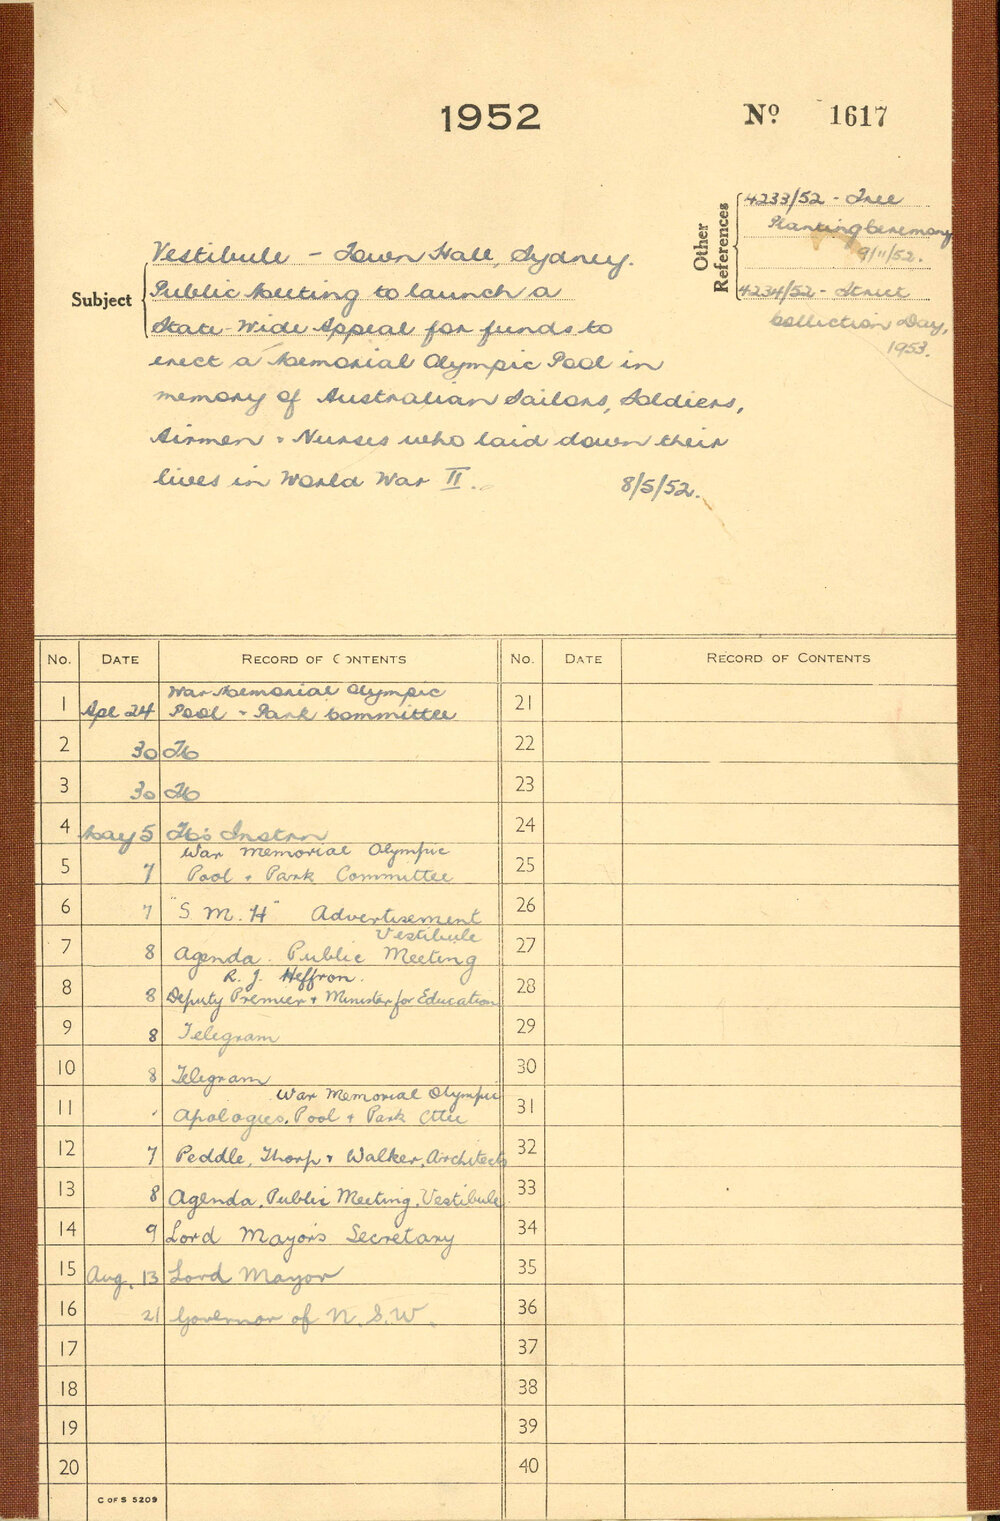 1952
Nº 1617
Other References
4233/52 - Tree
Planting Ceremony
9/11/52.
4234/52 - Street
Collection Day,
1953.
Subject
Vestibule - Town Hall, Sydney.
Public Meeting to launch a
State-Wide Appeal for funds to
erect a Memorial Olympic Pool in
memory of Australian Sailors, Soldiers,
Airmen & Nurses who laid down their
lives in World War II.
8/5/52.
No. DATE RECORD OF CONTENTS No. DATE RECORD OF CONTENTS
War Memorial Olympic
1 Apl 24 Pool & Park Committee 21
2 30 22
3 30 23
4 May 5 Instrn 24
War Memorial Olympic
5 7 Pool & Park Committee 25
6 7 "S.M.H" Advertisement 26
Vestibule
7 8 Agenda. Public Meeting 27
R. J. Heffron.
8 8 Deputy Premier & Minister for Education 28
9 8 Telegram 29
10 8 Telegram 30
War Memorial Olympic
11 Apologies. Pool & Park Cttee 31
12 7 Peddle, Thorp & Walker, Architects 32
13 8 Agenda, Public Meeting, Vestibule 33
14 9 Lord Mayor's Secretary 34
15 Aug. 13 Lord Mayor 35
16 21 Governor of N.S.W. 36
17 37
18 38
19 39
20 40
C OF S 5209